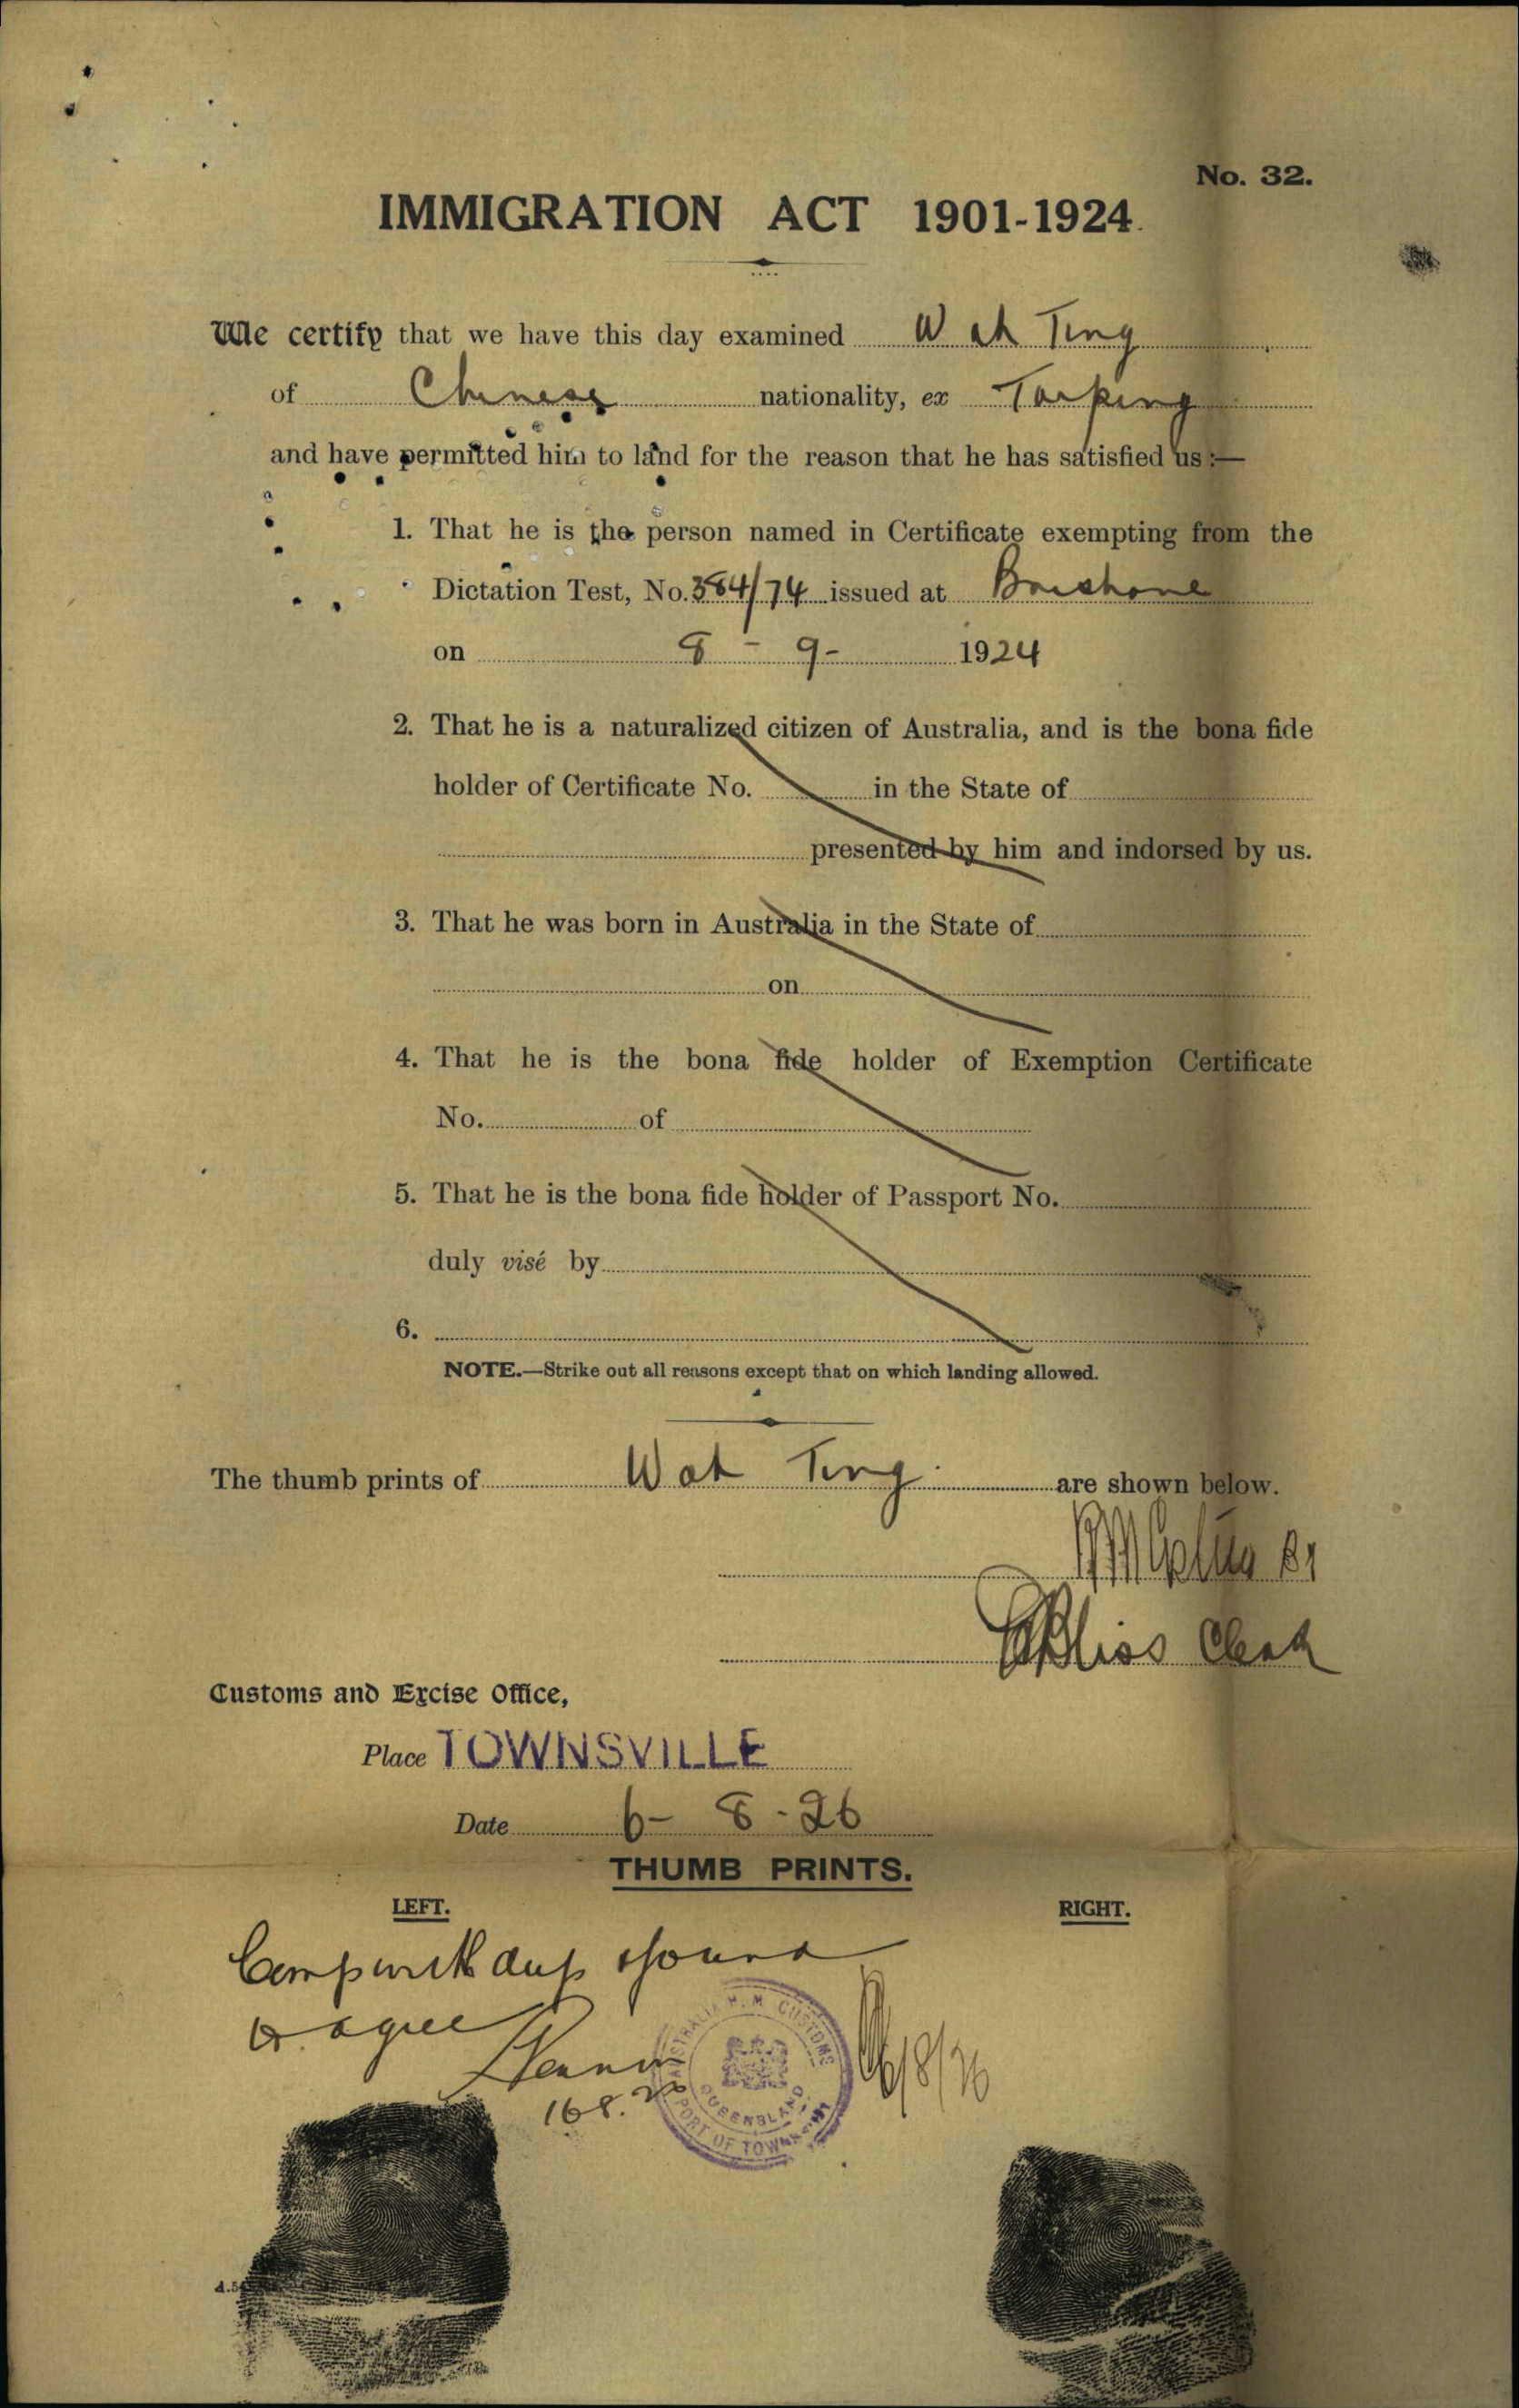 No. 32.
IMMIGRATION ACT 1901-1924.
We certify that we have this day examined Wah Ting
of Chinese nationality, ex Taiping
and have permitted him to land for the reason that he has satisfied us:—
1. That he is the person named in Certificate exempting from the
Dictation Test, No. 384/74 issued at Brisbane
on 8 - 9 - 1924
2. That he is a naturalized citizen of Australia, and is the bona fide
holder of Certificate No. in the State of
presented by him and indorsed by us.
3. That he was born in Australia in the State of
on
4. That he is the bona fide holder of Exemption Certificate
No. of
5. That he is the bona fide holder of Passport No.
duly visé by
6.
NOTE.—Strike out all reasons except that on which landing allowed.
The thumb prints of Wah Ting are shown below.
Bliss Clerk
Customs and Excise Office,
Place TOWNSVILLE
Date 6 - 8 - 26
THUMB PRINTS.
LEFT. RIGHT.
Comp with dup & found
to agree
16.8.26
6/8/26
AUSTRALIA H.M. CUSTOMS
QUEENSLAND
PORT OF TOWNSVILLE